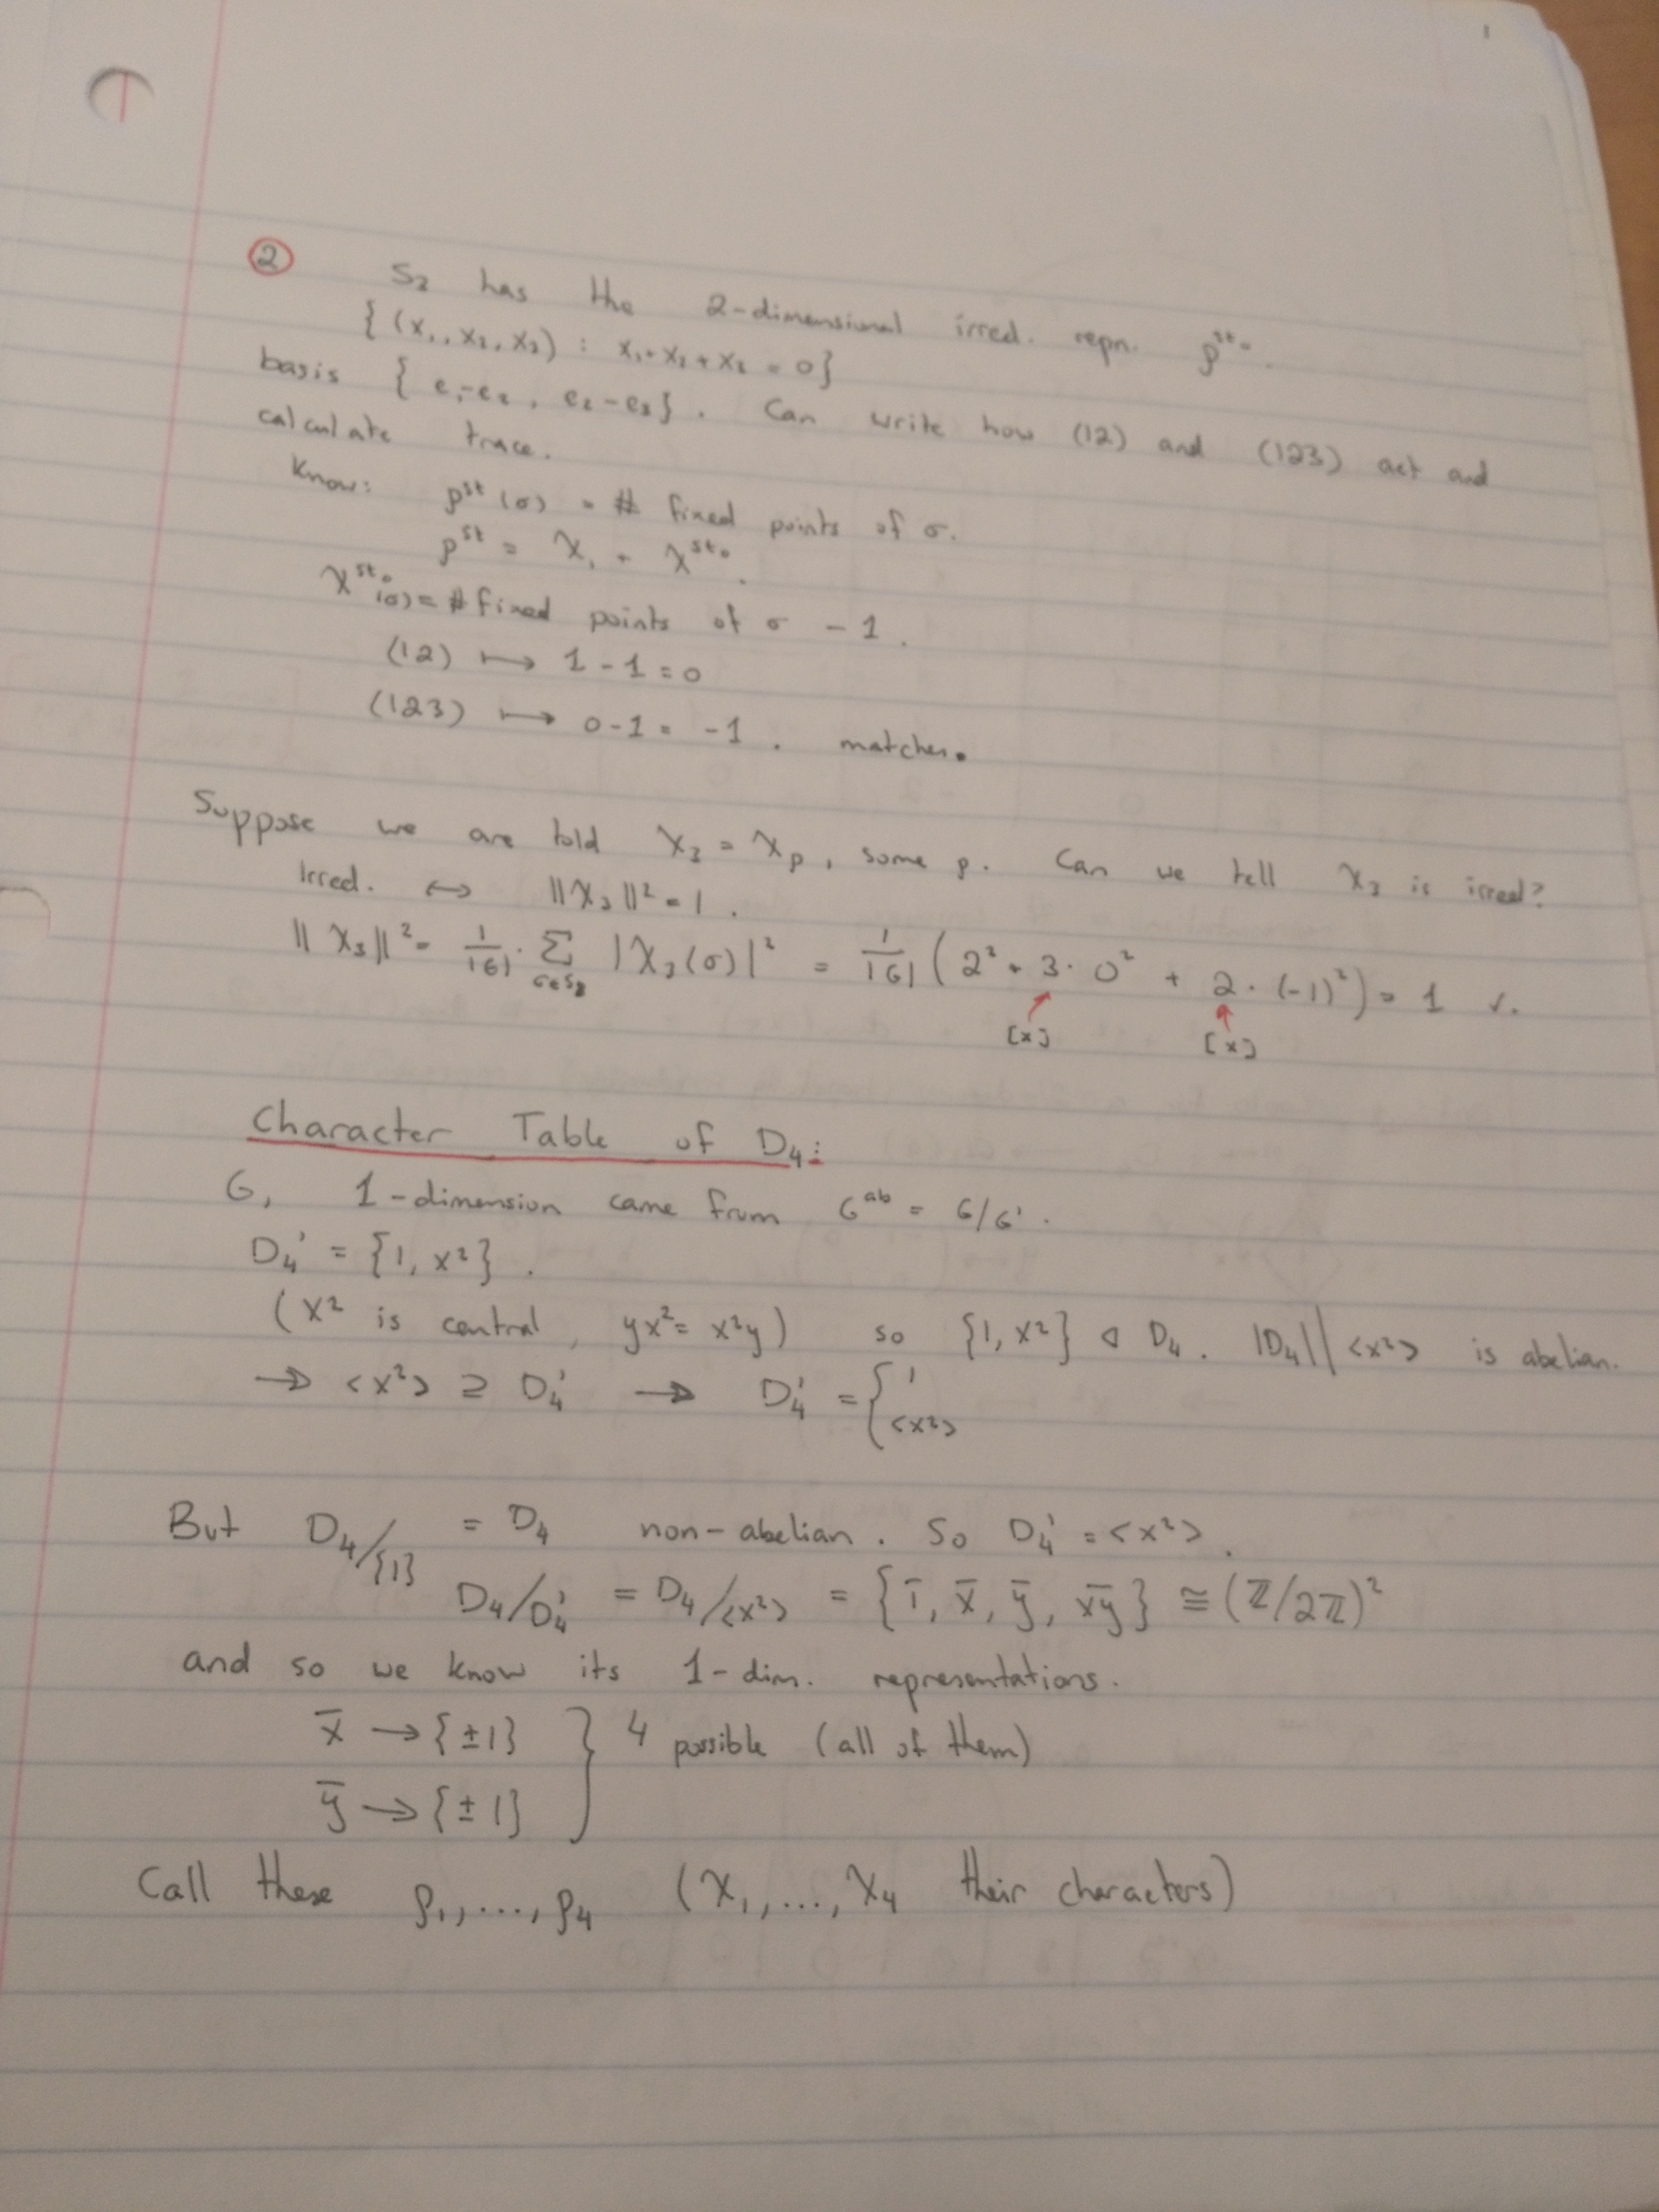 ② S₃ has the 2-dimensional irred. repn. ρ^{st₀}.
{(x₁, x₂, x₃) : x₁+x₂+x₃ = 0}
basis {e₁-e₂, e₂-e₃}. Can write how (12) and (123) act and
calculate trace.
Know: ρ^{st}(σ) = # fixed points of σ.
ρ^{st} = χ₁ + χ^{st₀}.
χ^{st₀}(σ) = # fixed points of σ - 1.
(12) ⟼ 1-1=0
(123) ⟼ 0-1 = -1. matches.
Suppose we are told χ₃ = χ_ρ, some ρ. Can we tell χ₃ is irred?
Irred. ↔ ||χ₃||² = 1.
||χ₃||² = 1/|G| · Σ_{σ∈S₃} |χ₃(σ)|² = 1/|G| (2² + 3·0² + 2·(-1)²) = 1 ✓.
[x] [x]
Character Table of D₄:
G, 1-dimension came from G^{ab} = G/G'.
D₄' = {1, x²}.
(x² is central, yx² = x²y) so {1, x²} ◁ D₄. |D₄|/|<x²> is abelian.
→ <x²> ⊇ D₄' → D₄' = { 1
<x²>
But D₄/{1} = D₄ non-abelian. So D₄' = <x²>.
D₄/D₄' = D₄/<x²> = {1̄, x̄, ȳ, x̄ȳ} ≅ (ℤ/2ℤ)²
and so we know its 1-dim. representations.
x̄ → {±1} } 4 possible (all of them)
ȳ → {±1}
Call these ρ₁, ..., ρ₄ (χ₁, ..., χ₄ their characters)